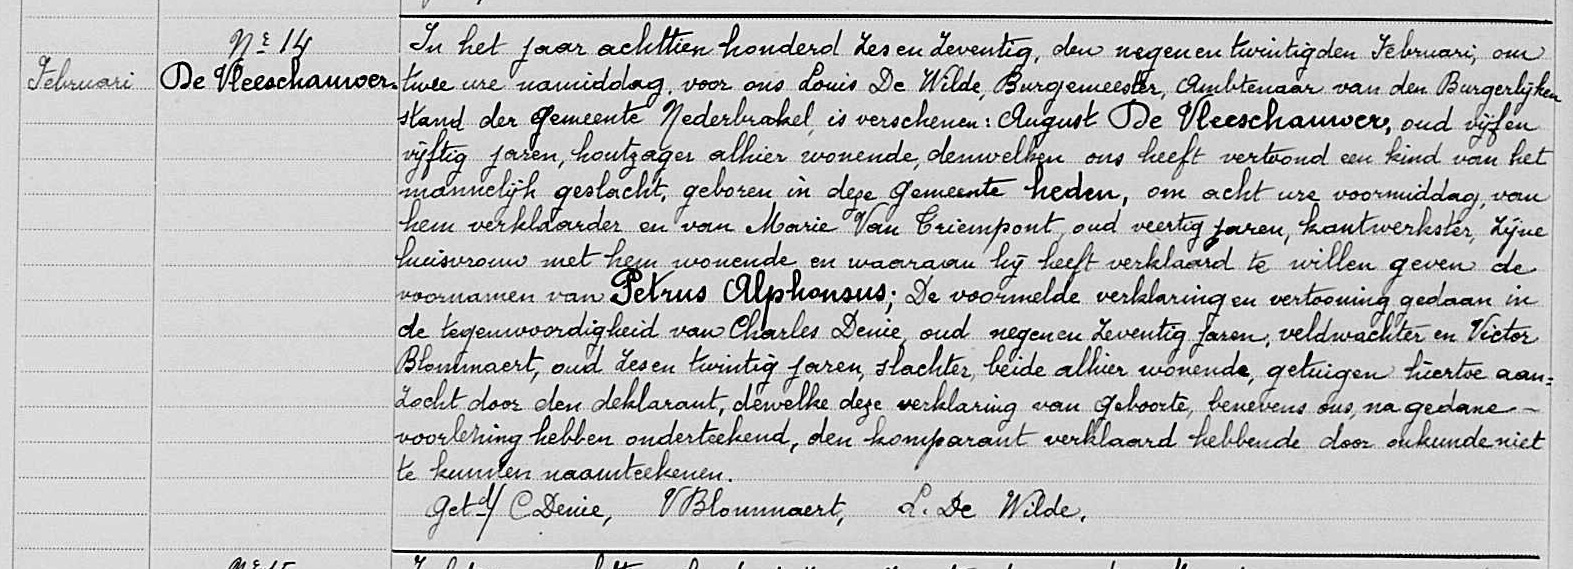 Nr 14
Februari
De Vleeschauwer.
In het jaar achttien honderd zes en zeventig, den negenentwintigden Februari, om
twee ure namiddag, voor ons Louis De Wilde, Burgemeester, Ambtenaar van den Burgerlijken
stand der Gemeente Nederbrakel, is verschenen: August De Vleeschauwer, oud vijfen
vijftig jaren, houtzager alhier wonende, denwelken ons heeft vertoond een kind van het
mannelijk geslacht, geboren in deze Gemeente heden, om acht ure voormiddag, van
hem verklaarder en van Marie Van Triempont, oud veertig jaren, kantwerkster, zijne
huisvrouw met hem wonende en waaraan hij heeft verklaard te willen geven de
voornamen van Petrus Alphonsus; De voormelde verklaring en vertooning gedaan in
de tegenwoordigheid van Charles Denie, oud negen en zeventig jaren, veldwachter en Victor
Blommaert, oud zes en twintig jaren, slachter, beide alhier wonende, getuigen hiertoe aan=
zocht door den deklarant, dewelke deze verklaring van geboorte, benevens ons, na gedane –
voorlezing hebben onderteekend, den komparant verklaard hebbende door onkunde niet
te kunnen naamteekenen.
Getd/ C Denie, V Blommaert, L. De Wilde.